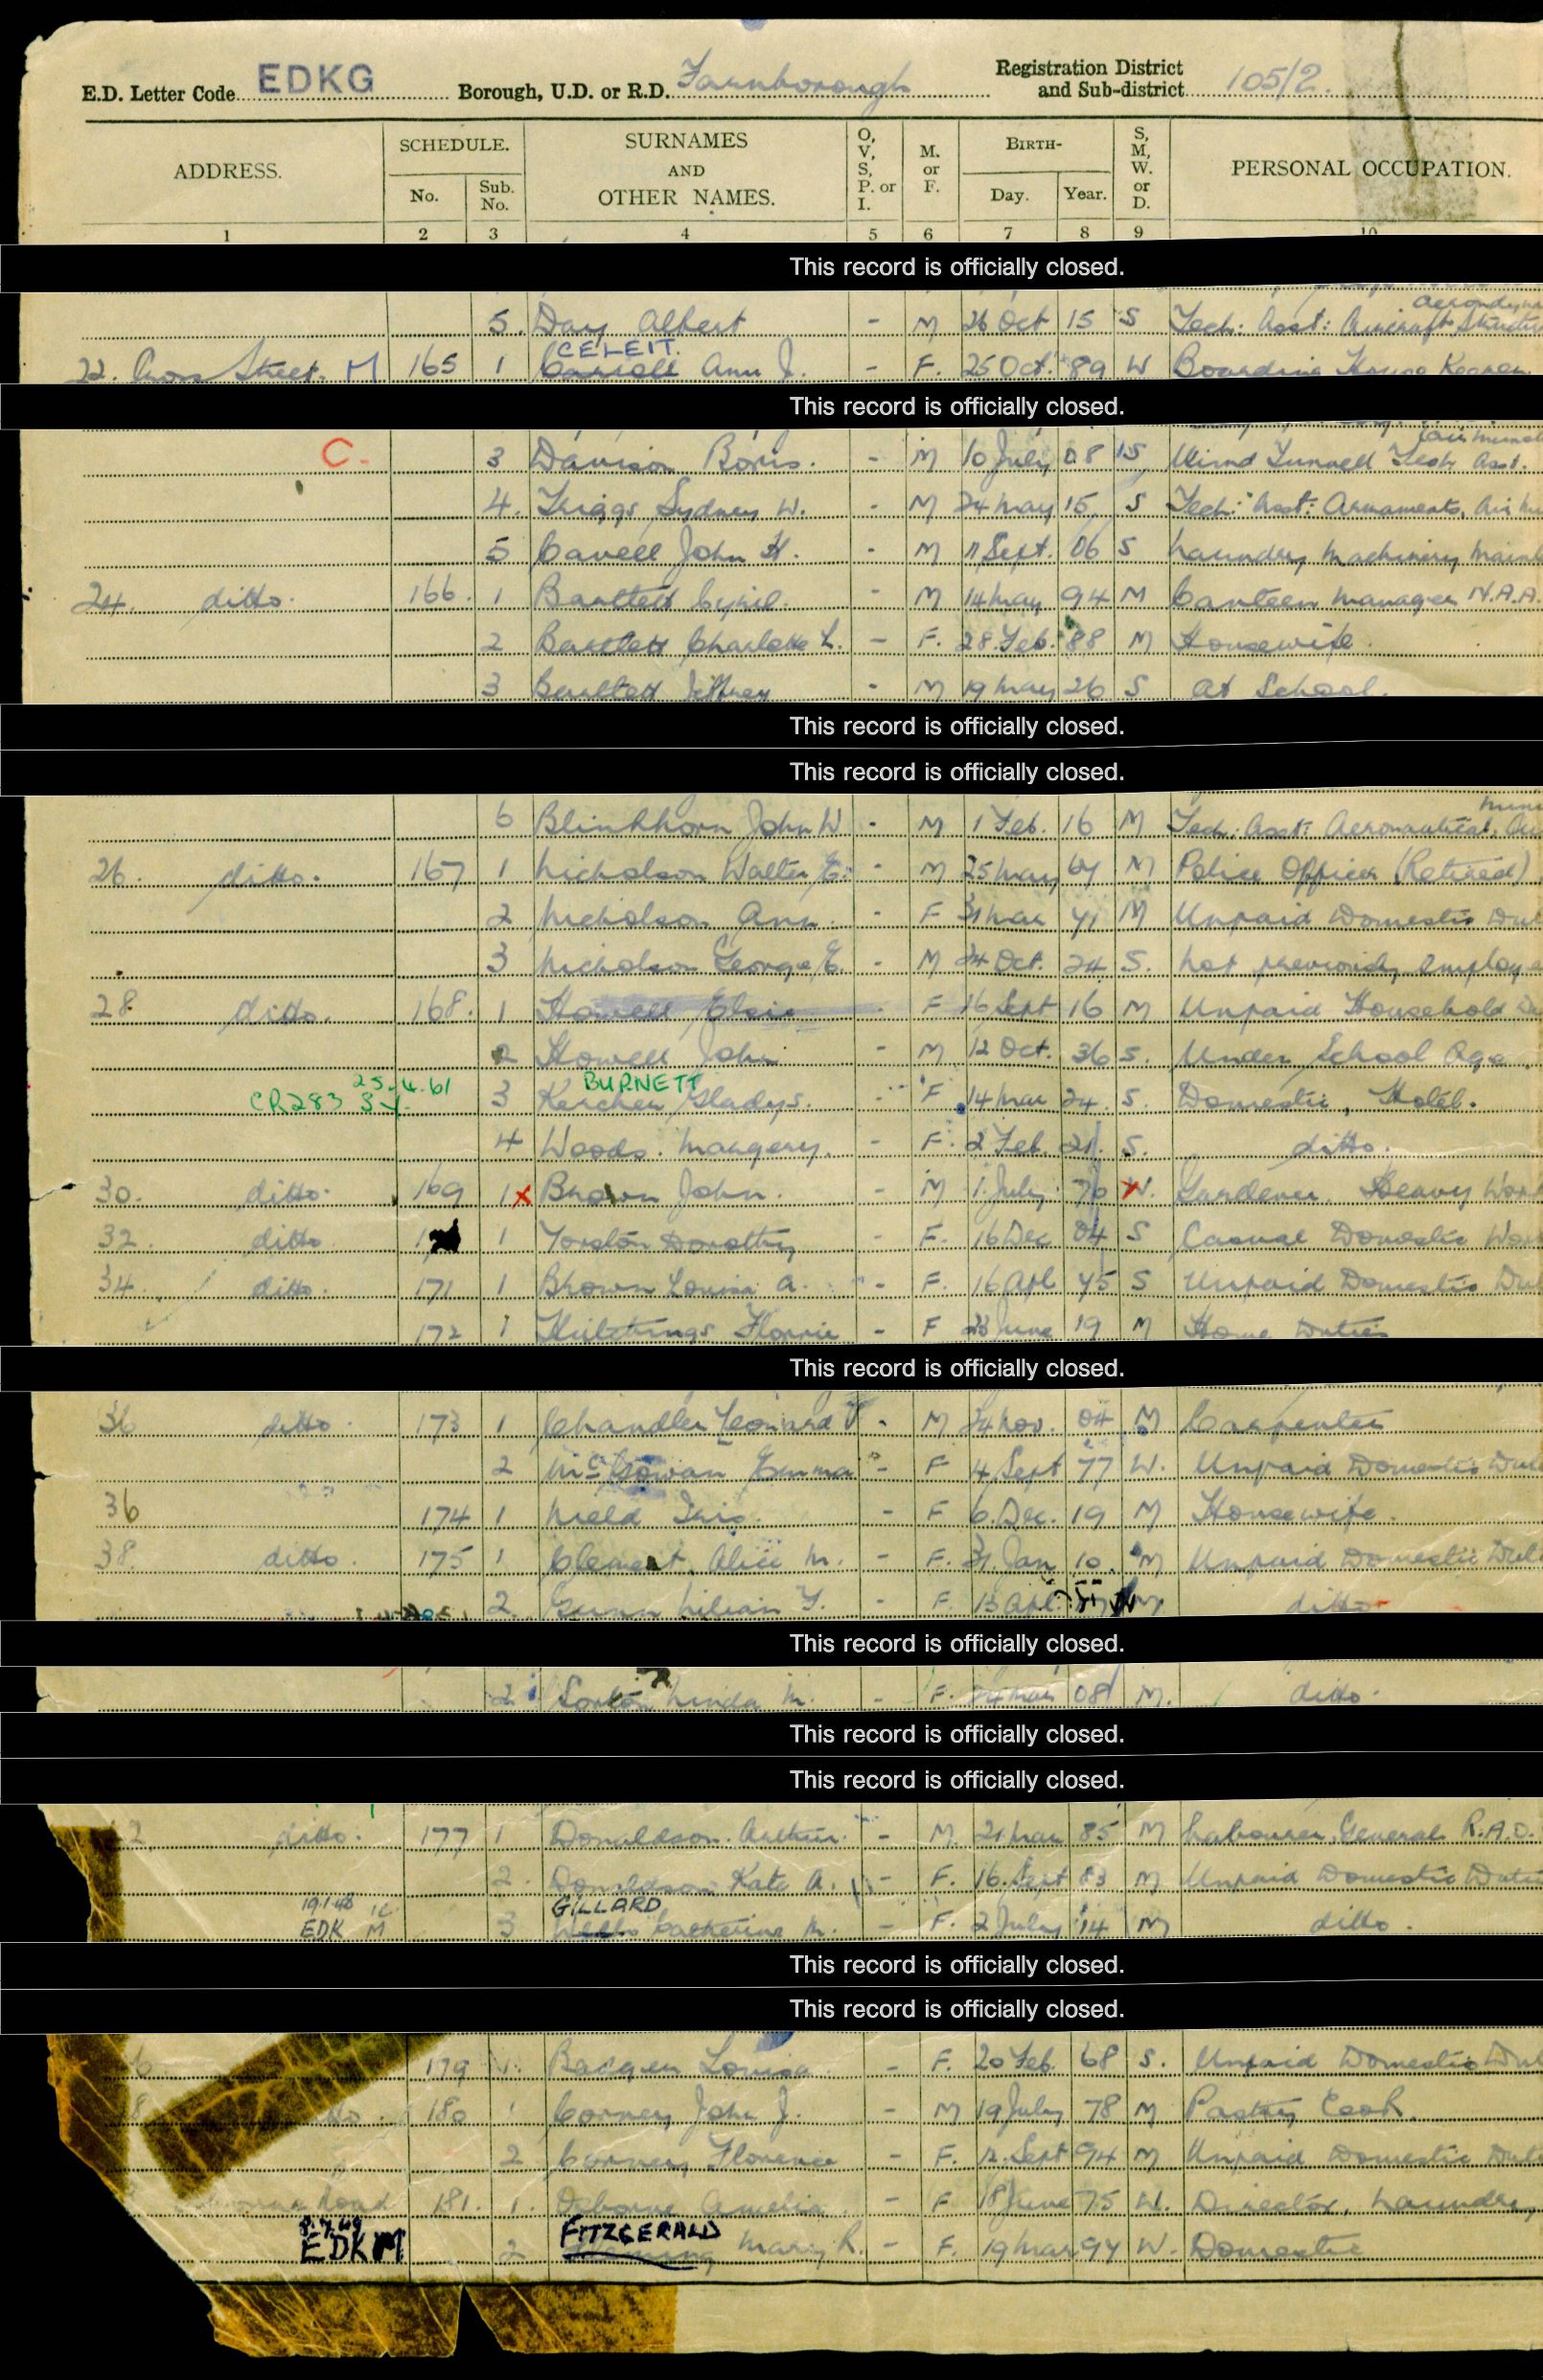 E.D. Letter Code EDKG Borough, U.D. or R.D. Farnborough Registration District and Sub-district 105/2.
ADDRESS. SCHEDULE. No. Sub. No. SURNAMES AND OTHER NAMES. O, V, S, P. or I. M. or F. BIRTH- Day. Year. S, M, W. or D. PERSONAL OCCUPATION.
1 2 3 4 5 6 7 8 9 10
This record is officially closed.
5. Day Albert - M 26 Oct 15 S Tech: Asst: Aircraft
CELEIT.
22. Street. M 165 1 Ann J. - F. 25 Oct. 89 W Boarding House Keeper
This record is officially closed.
C. 3 Davison Boris. - M 10 July 08 S Wind Tunnell Tech Asst.
4. Triggs Sydney W. - M 24 May 15 S Tech: Asst: Armaments, Air
5 Cavell John H. - M 11 Sept. 06 S Laundry Machinery
24. ditto. 166. 1 Bartlett Cyril. - M 14 May 94 M Canteen Manager N.A.A.
2 Bartlett Charlotte L. - F. 28 Feb. 88 M Housewife.
3 Bartlett Jeffrey - M 19 May 26 S At School.
This record is officially closed.
This record is officially closed.
6 Blinkhorn John W - M 1 Feb. 16 M Tech: Asst: Aeronautical,
26. ditto. 167 1 Nicholson Walter E. - M 25 May 67 M Police Officer (Retired)
2 Nicholson Ann. - F 31 Mar 71 M Unpaid Domestic
3 Nicholson George E. - M 24 Oct. 24 S. Not previously
28 ditto. 168. 1 Howell Elsie F 16 Sept 16 M Unpaid Household
2 Howell John - M 12 Oct. 36 S. Under School Age
25.4.61 BURNETT
CR283 3 Kercher Gladys. F 14 Mar 24. S. Domestic, Hotel.
4 Woods. Margery. - F. 2 Feb. 21. S. ditto.
30. ditto. 169 1 x Brown John. - M 1 July 70 W. Gardener. Heavy
32. ditto 1 Yorston Dorothy - F. 16 Dec 04 S Casual Domestic
34. ditto. 171 1 Brown Louisa A. - F. 16 Apl 75 S Unpaid Domestic
172 1 Hutchings Florrie - F 23 June 19 M Home Duties
This record is officially closed.
36 ditto. 173 1 Chandler Leonard - M 24 Nov. 04 M Carpenter
2 McGowan Emma - F 4 Sept 77 W. Unpaid Domestic
36 174 1 Meld Iris. - F 6. Dec. 19 M Housewife.
38. ditto. 175 1 Clement Alice M. - F. 31 Jan 10. M Unpaid Domestic
2. Gunn Lilian Y. - F. 13 Apl. ditto
This record is officially closed.
2 Linda M. - F. 24 08 M. ditto.
This record is officially closed.
This record is officially closed.
2 ditto. 177 1 Donaldson. Arthur. - M. 21 Mar 85 M Labourer, General R.A.O.
2. Donaldson Kate A. - F. 16. Sept 83 M Unpaid Domestic
19.1.48 GILLARD
EDK M 3 Catherine M. - F. 2 July 14 M ditto.
This record is officially closed.
This record is officially closed.
6 179 1. Badger Louisa - F. 20 Feb. 68 S. Unpaid Domestic
8 180 1 Corney John J. - M 19 July 78 M Pastry Cook.
2 Corney Florence - F. 12. Sept 94 M Unpaid Domestic
Road 181. 1. Osborne Amelia. - F 18 June 75 W. Director, Laundry,
FITZGERALD
EDKM 2 Mary R. - F. 19 Mar 94 W. Domestic